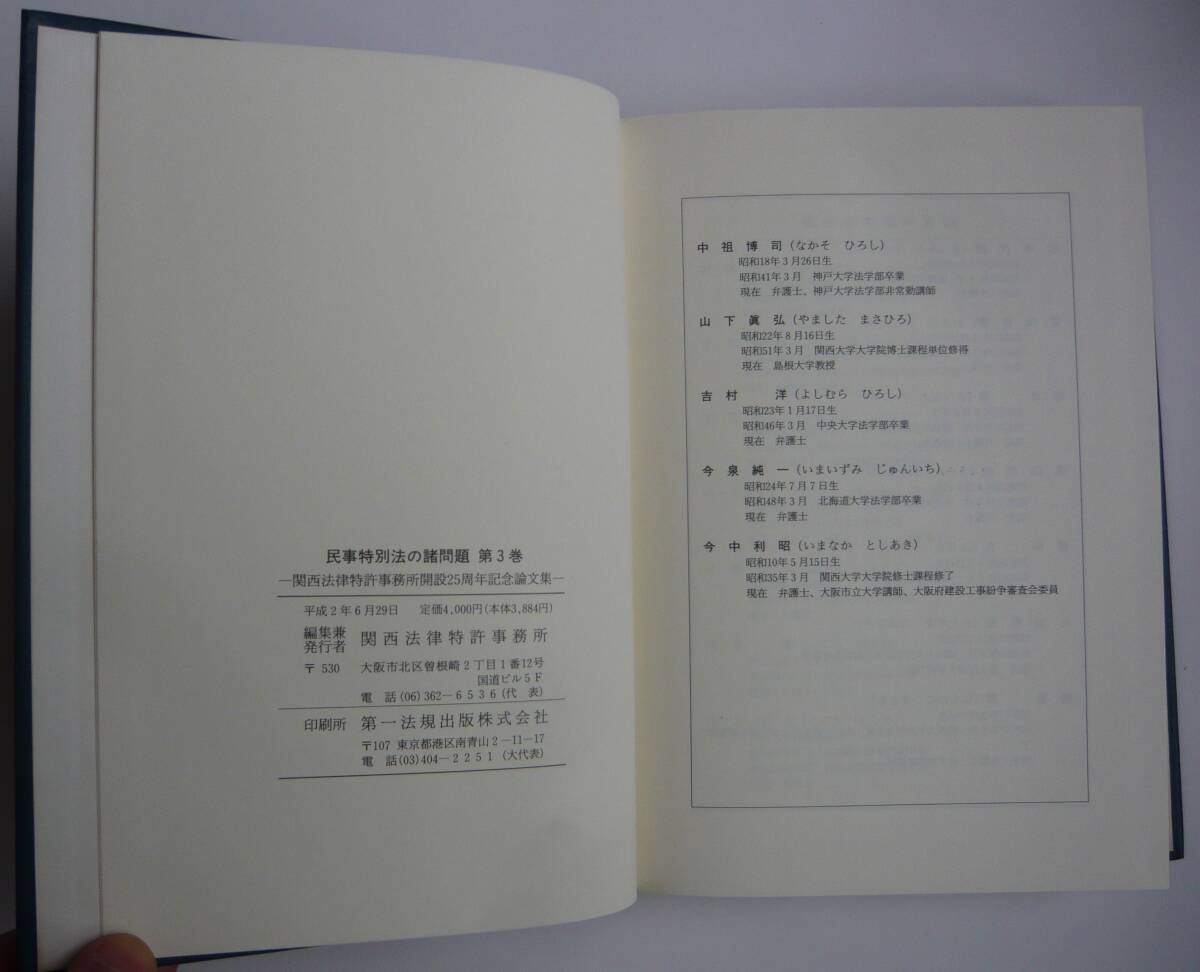 民事特別法の諸問題 第3巻
―関西法律特許事務所開設25周年記念論文集―
平成2年6月29日 定価4,000円(本体3,884円)
編集兼
発行者 関西法律特許事務所
〒530 大阪市北区曽根崎2丁目1番12号
国道ビル5F
電 話(06)362―6536(代 表)
印刷所 第一法規出版株式会社
〒107 東京都港区南青山2―11―17
電 話(03)404―2251 (大代表)
中 祖 博 司(なかそ ひろし)
昭和18年3月26日生
昭和41年3月 神戸大学法学部卒業
現在 弁護士、神戸大学法学部非常勤講師
山 下 眞 弘(やました まさひろ)
昭和22年8月16日生
昭和51年3月 関西大学大学院博士課程単位修得
現在 島根大学教授
吉 村 洋(よしむら ひろし)
昭和23年1月17日生
昭和46年3月 中央大学法学部卒業
現在 弁護士
今 泉 純 一(いまいずみ じゅんいち)
昭和24年7月7日生
昭和48年3月 北海道大学法学部卒業
現在 弁護士
今 中 利 昭(いまなか としあき)
昭和10年5月15日生
昭和35年3月 関西大学大学院修士課程修了
現在 弁護士、大阪市立大学講師、大阪府建設工事紛争審査会委員